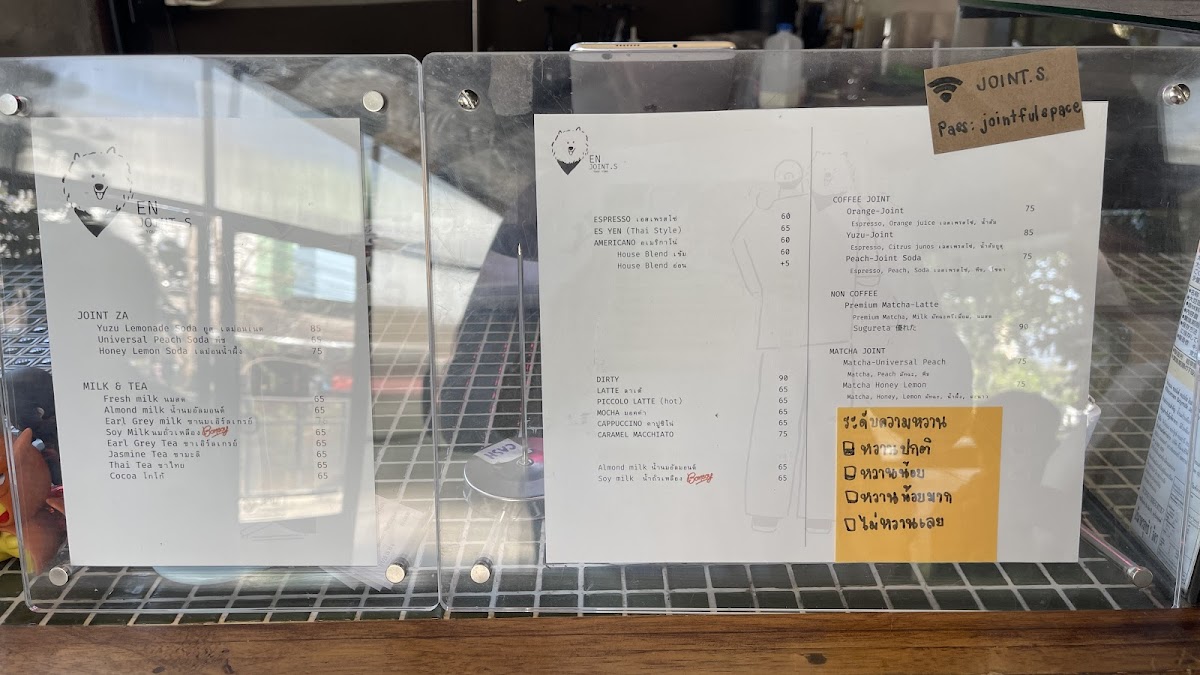 EN
JOINT.S
JOINT ZA
Yuzu Lemonade Soda ยูซุ เลม่อนเนด 85
Universal Peach Soda พีช 65
Honey Lemon Soda เลม่อนน้ำผึ้ง 75
MILK & TEA
Fresh milk นมสด 65
Almond milk น้ำนมอัลมอนด์ 65
Earl Grey milk ชานมเอิร์ลเกรย์ 65
Soy Milk นมถั่วเหลือง Bonsoy 65
Earl Grey Tea ชาเอิร์ลเกรย์ 65
Jasmine Tea ชามะลิ 65
Thai Tea ชาไทย 65
Cocoa โกโก้ 65
EN
JOINT.S
ESPRESSO เอสเพรสโซ่ 60
ES YEN (Thai Style) 65
AMERICANO อเมริกาโน่ 60
House Blend เข้ม 60
House Blend อ่อน +5
DIRTY 90
LATTE ลาเต้ 65
PICCOLO LATTE (hot) 65
MOCHA มอคค่า 65
CAPPUCCINO คาปูชิโน่ 65
CARAMEL MACCHIATO 75
Almond milk น้ำนมอัลมอนด์ 65
Soy milk น้ำถั่วเหลือง Bonsoy 65
JOINT.S
Pass: jointfulspace
COFFEE JOINT
Orange-Joint 75
Espresso, Orange juice เอสเพรสโซ่, น้ำส้ม
Yuzu-Joint 85
Espresso, Citrus junos เอสเพรสโซ่, น้ำส้มยูซุ
Peach-Joint Soda 75
Espresso, Peach, Soda เอสเพรสโซ่, พีช, โซดา
NON COFFEE
Premium Matcha-Latte
Premium Matcha, Milk มัทฉะพรีเมี่ยม, นมสด
Sugureta 優れた 90
MATCHA JOINT
Matcha-Universal Peach 75
Matcha, Peach มัทฉะ, พีช
Matcha Honey Lemon 75
Matcha, Honey, Lemon มัทฉะ, น้ำผึ้ง, มะนาว
ระดับความหวาน
หวานปกติ
หวานน้อย
หวานน้อยมาก
ไม่หวานเลย